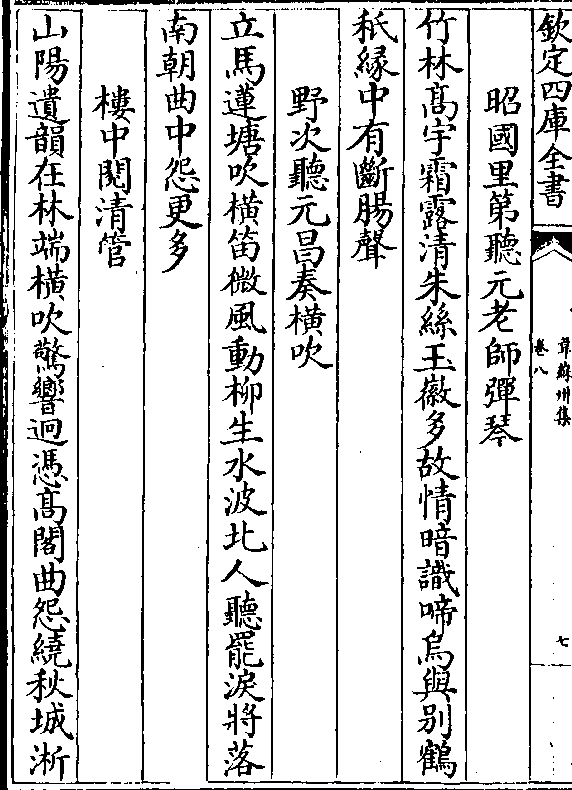 欽定四庫全書
韋蘇州集
卷八
七
昭國里第聽元老師彈琴
竹林髙宇霜露清朱絲玉徽多故情暗識啼烏與别鶴
秖縁中有斷腸聲
野次聽元昌奏横吹
立馬蓮塘吹横笛微風動柳生水波北人聽罷淚將落
南朝曲中怨更多
樓中閲清管
山陽遺韻在林端横吹驚響迥憑髙閣曲怨繞秋城淅